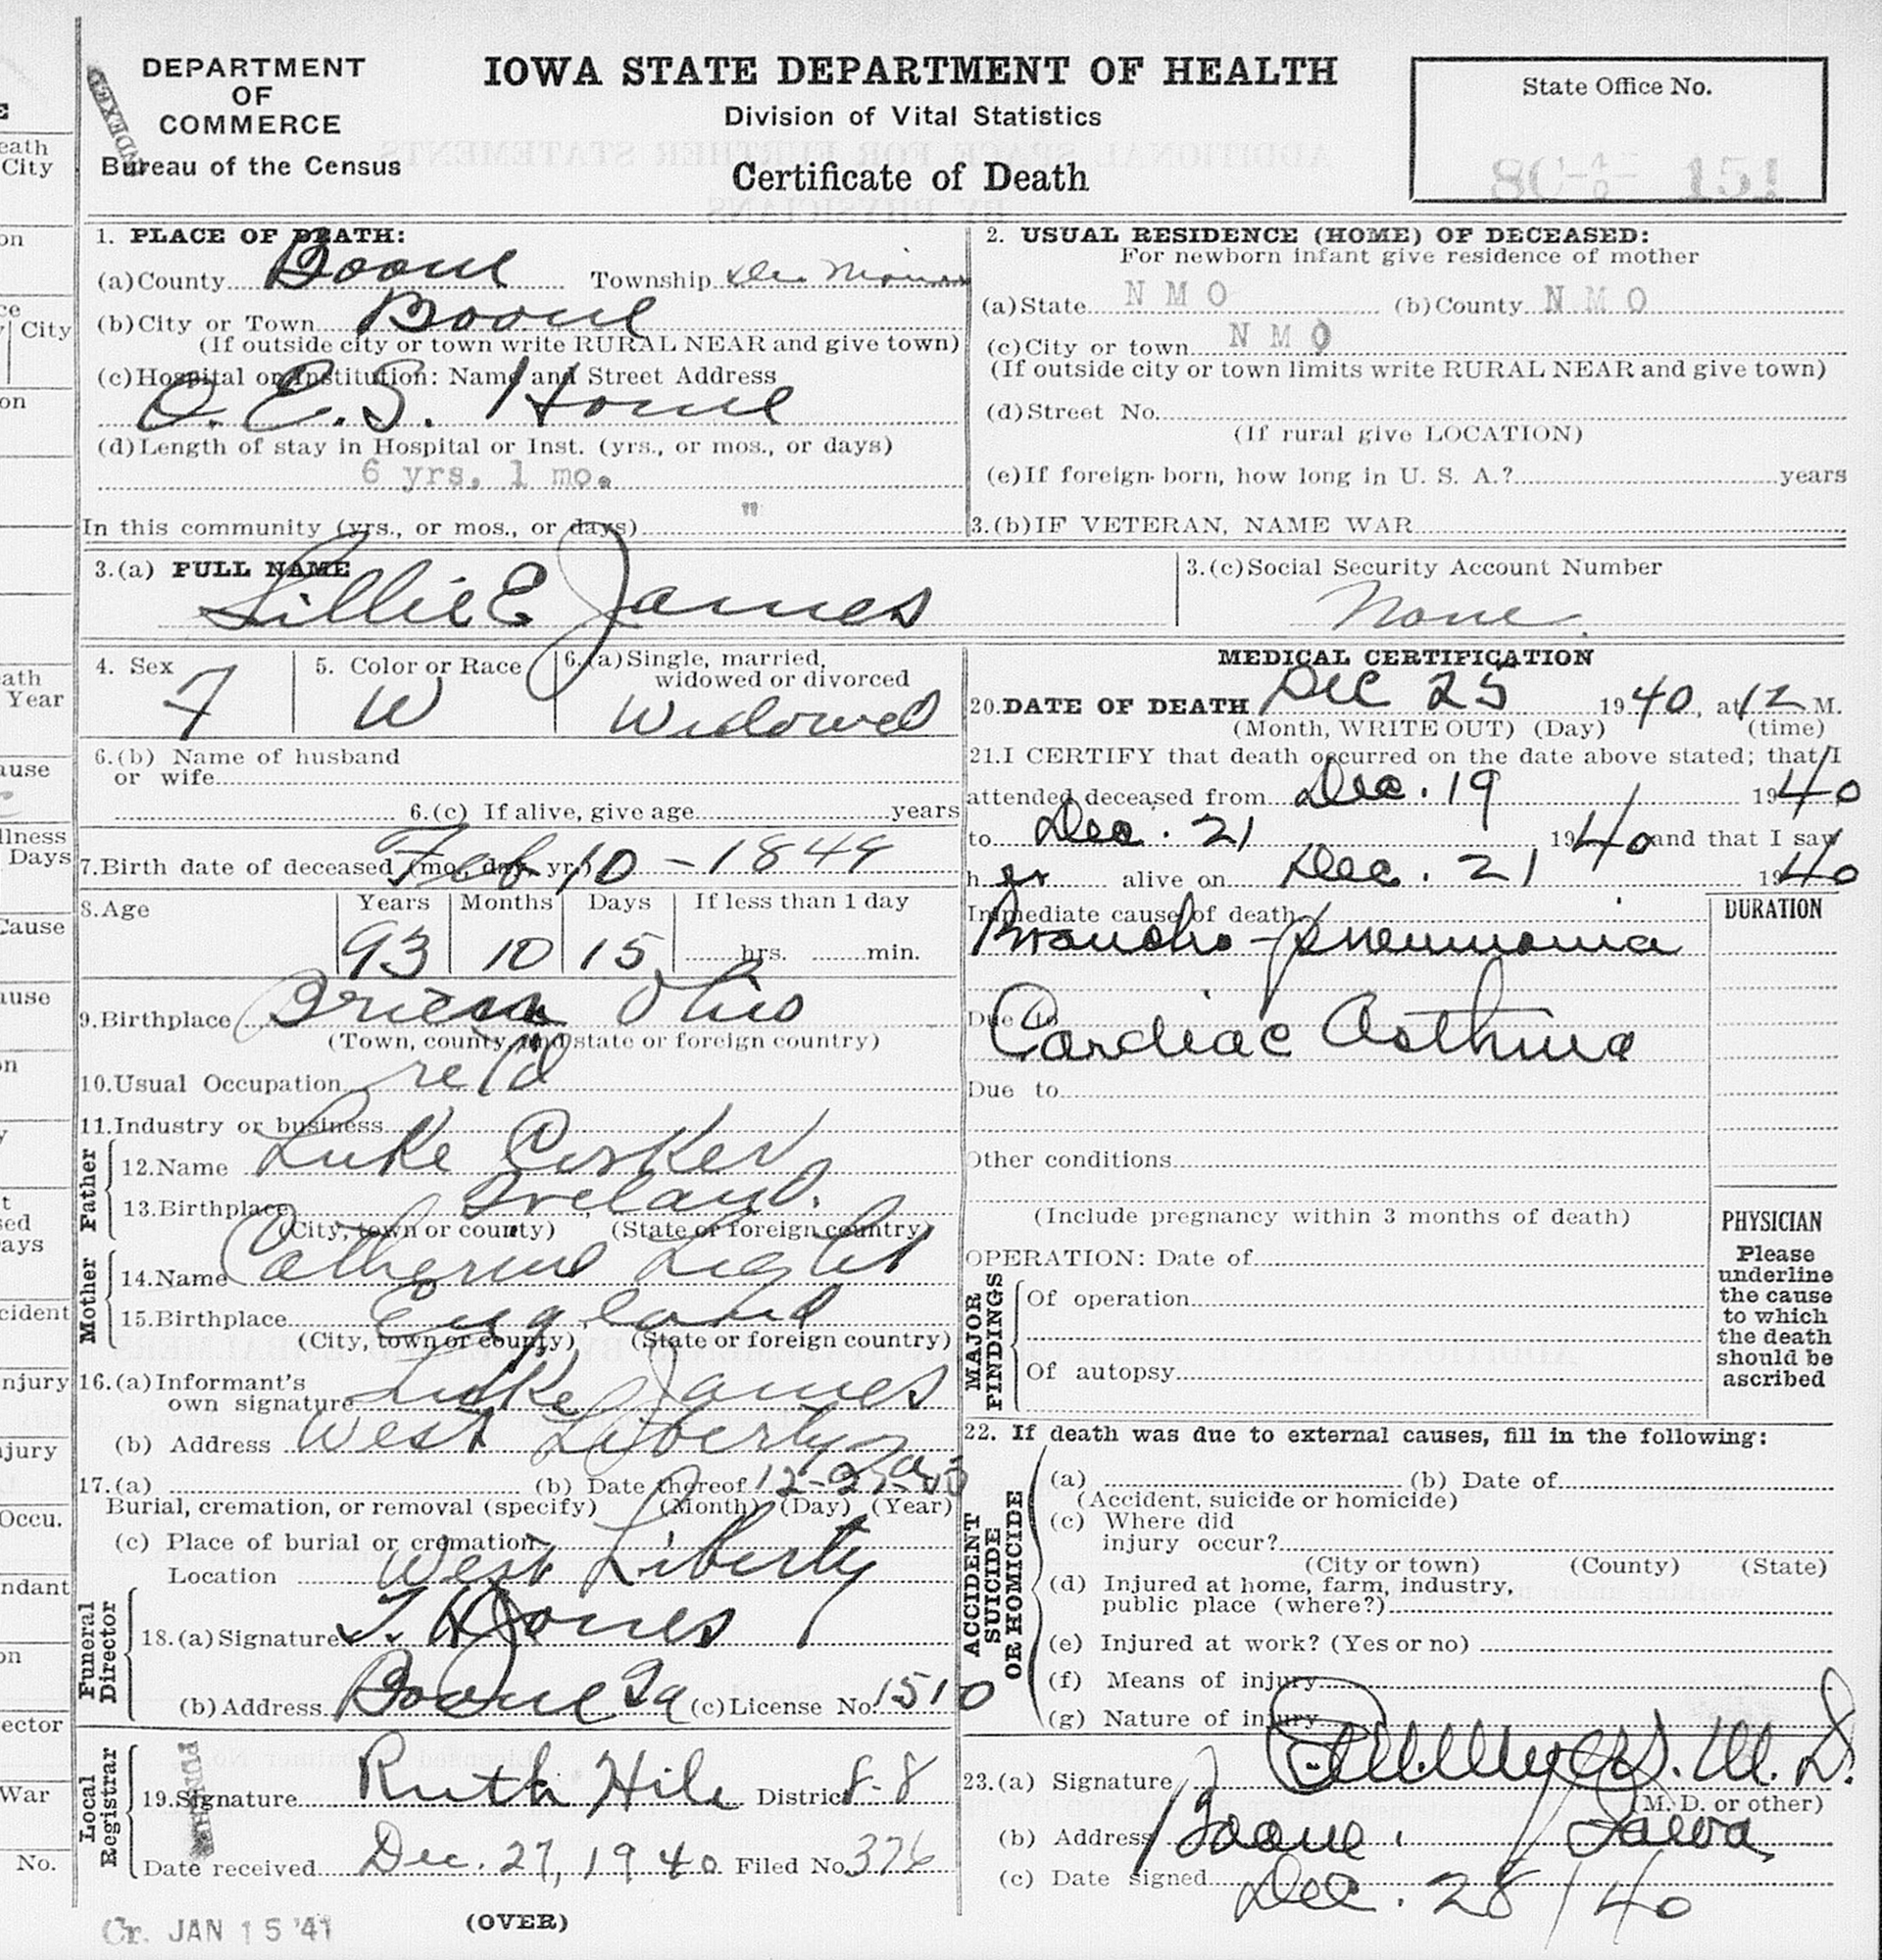 DEPARTMENT
OF
COMMERCE
Bureau of the Census
INDEXED
IOWA STATE DEPARTMENT OF HEALTH
Division of Vital Statistics
Certificate of Death
State Office No.
151
1. PLACE OF DEATH:
(a) County Boone Township Des Moines
(b) City or Town Boone
(If outside city or town write RURAL NEAR and give town)
(c) Hospital or Institution: Name and Street Address
O. E. S. Home
(d) Length of stay in Hospital or Inst. (yrs., or mos., or days)
6 yrs. 1 mo.
In this community (yrs., or mos., or days) "
2. USUAL RESIDENCE (HOME) OF DECEASED:
For newborn infant give residence of mother
(a) State N M O (b) County N M O
(c) City or town N M O
(If outside city or town limits write RURAL NEAR and give town)
(d) Street No.
(If rural give LOCATION)
(e) If foreign born, how long in U. S. A.? years
3.(b) IF VETERAN, NAME WAR
3.(a) FULL NAME
Lillie E James
3.(c) Social Security Account Number
None
4. Sex
F
5. Color or Race
W
6.(a) Single, married,
widowed or divorced
Widowed
6.(b) Name of husband
or wife
6.(c) If alive, give age years
7. Birth date of deceased (mo., day, yr.) Feb 10 - 1849
8. Age
Years Months Days If less than 1 day
93 10 15 hrs. min.
9. Birthplace Ohio
(Town, county, and state or foreign country)
10. Usual Occupation ret'd
11. Industry or business
Father
12. Name Luke Corker
13. Birthplace Ireland.
(City, town or county) (State or foreign country)
Mother
14. Name Catherine Light
15. Birthplace England
(City, town or county) (State or foreign country)
16.(a) Informant's
own signature Luke James
(b) Address West Liberty Ia
17.(a) (b) Date thereof 12-27-40
Burial, cremation, or removal (specify) (Month) (Day) (Year)
(c) Place of burial or cremation
Location West Liberty
Funeral
Director
18.(a) Signature T. H. Jones
(b) Address Boone Ia (c) License No. 1510
Local
Registrar
19. Signature Ruth Hile District 8-8
Date received Dec. 27, 1940 Filed No. 376
PUNCHED
Cr. JAN 15 '41
(OVER)
MEDICAL CERTIFICATION
20. DATE OF DEATH Dec 25 1940, at 12 M.
(Month, WRITE OUT) (Day) (time)
21. I CERTIFY that death occurred on the date above stated; that I
attended deceased from Dec. 19 1940
to Dec. 21 1940 and that I saw
h er alive on Dec. 21 1940
Immediate cause of death
Broncho-pneumonia
DURATION
Due to
Cardiac Asthma
Due to
Other conditions
(Include pregnancy within 3 months of death)
OPERATION: Date of
MAJOR
FINDINGS
Of operation
Of autopsy
PHYSICIAN
Please
underline
the cause
to which
the death
should be
ascribed
22. If death was due to external causes, fill in the following:
ACCIDENT
SUICIDE
OR HOMICIDE
(a) (b) Date of
(Accident, suicide or homicide)
(c) Where did
injury occur?
(City or town) (County) (State)
(d) Injured at home, farm, industry,
public place (where?)
(e) Injured at work? (Yes or no)
(f) Means of injury
(g) Nature of injury
23.(a) Signature M. D.
(M. D. or other)
(b) Address Boone, Iowa
(c) Date signed Dec. 28/40